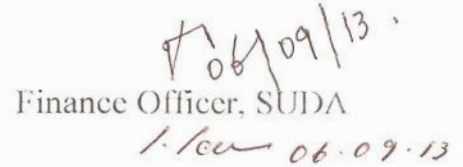 06/09/13.
Finance Officer, SUDA
06.09.13